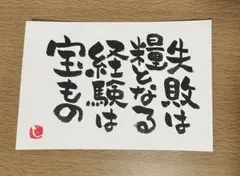 失敗は
糧となる
経験は
宝もの